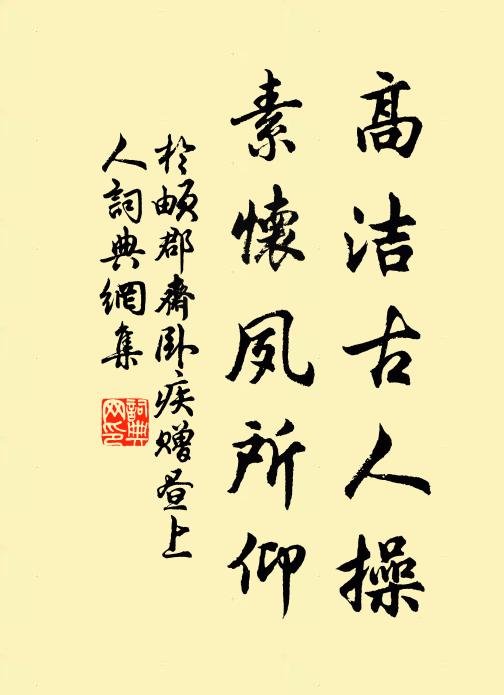 高洁古人操
素懷夙所仰
於頔郡齋卧疾赠昼上
人詞典網集
詞典
网印